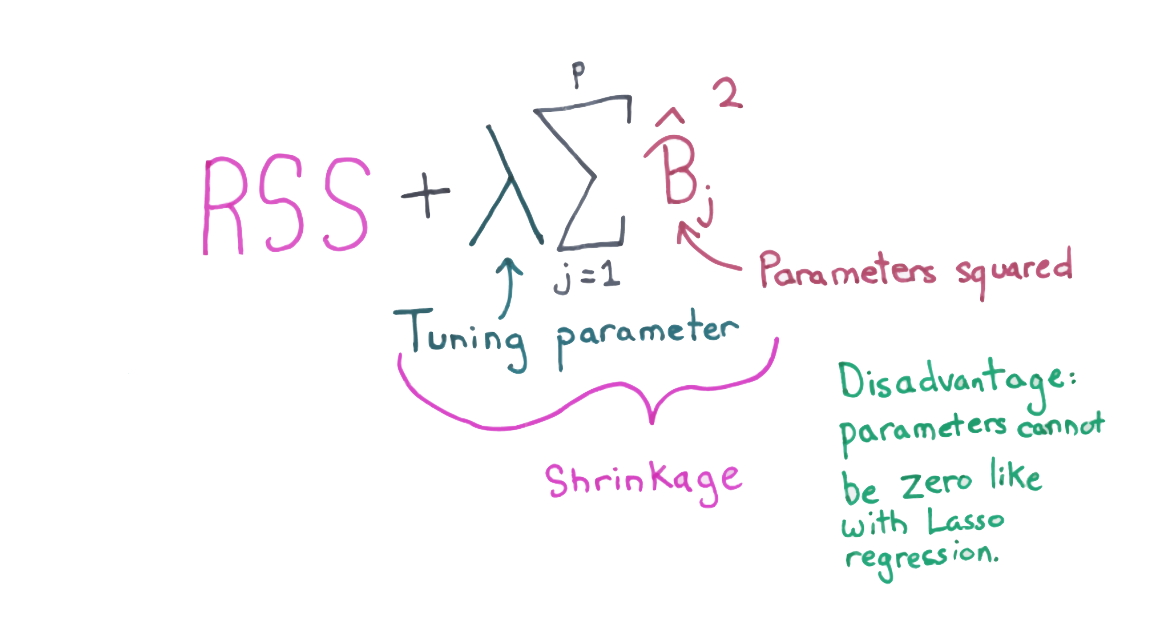 p
RSS + λ ∑ B̂j 2
j=1
Parameters squared
Tuning parameter
Shrinkage
Disadvantage:
parameters cannot
be zero like
with Lasso
regression.